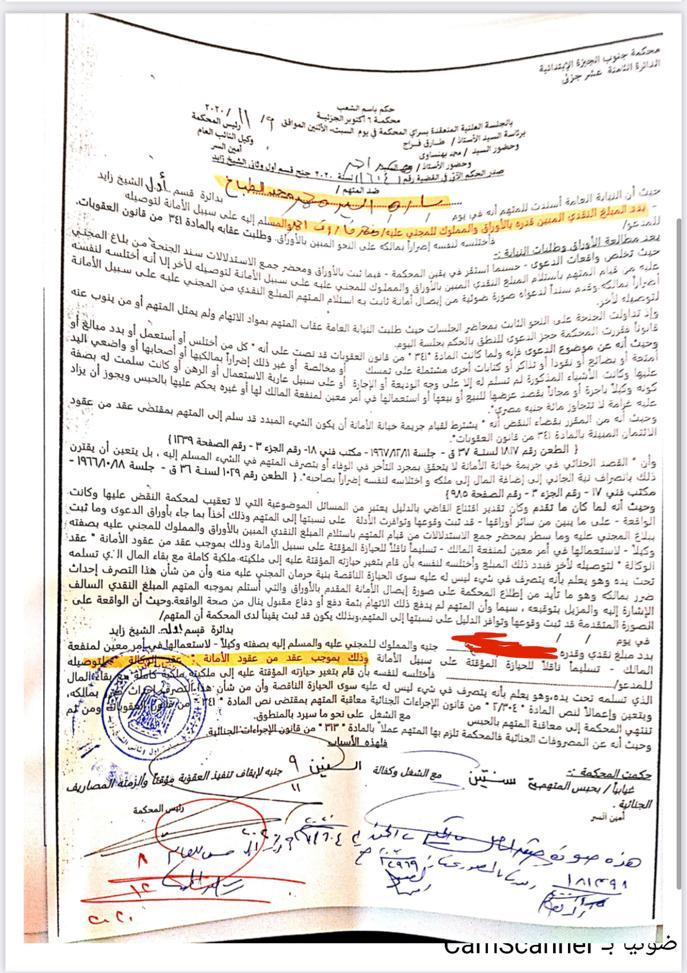 محكمة جنوب الجيزة الإبتدائية
الدائرة الثامنة عشر جزئى
حكم باسم الشعب
محكمة ٦ أكتوبر الجزئية
بالجلسة العلنية المنعقدة بسراي المحكمة في يوم السبت، الأثنين الموافق / ١١ / ٢٠٢٠
برئاسة السيد الأستاذ / طارق فراج رئيس المحكمة
وحضور السيد / محمد بهنساوى وكيل النائب العام
وحضور الأستاذ / أمين السر
صدر الحكم الآتى في القضية رقم / لسنة ٢٠٢٠ جنح قسم أول وثانى الشيخ زايد
ضد المتهم /
حيث أن النيابة العامة أسندت للمتهم أنه في يوم بدائرة قسم الشيخ زايد
- بدد المبلغ النقدي المبين قدره بالأوراق والمملوك للمجني عليه/ والمسلم إليه على سبيل الأمانة لتوصيله
للمدعو/ فأختلسه لنفسه إضراراً بمالكه على النحو المبين بالأوراق. وطلبت عقابه بالمادة ٣٤١ من قانون العقوبات.
بعد مطالعة الأوراق وطلبات النيابة:-
حيث تخلص واقعات الدعوى - حسبما استقر في يقين المحكمة - فيما ثبت بالأوراق ومحضر جمع الاستدلالات سند الجنحة من بلاغ المجني
عليه من قيام المتهم باستلام المبلغ النقدي المبين بالأوراق والمملوك للمجني عليه على سبيل الأمانة لتوصيله لآخر إلا أنه أختلسه لنفسه
أضراراً بمالكه وقدم سنداً لدعواه صورة ضوئية من إيصال أمانة ثابت به استلام المتهم المبلغ النقدي من المجني عليه على سبيل الأمانة
لتوصيله لآخر.
وإذ تداولت الجنحة على النحو الثابت بمحاضر الجلسات حيث طلبت النيابة العامة عقاب المتهم بمواد الاتهام ولم يمثل المتهم أو من ينوب عنه
قانوناً فقررت المحكمة حجز الدعوى للنطق بالحكم بجلسة اليوم.
وحيث أنه عن موضوع الدعوى فإنه ولما كانت المادة "٣٤١" من قانون العقوبات قد نصت على أنه "كل من أختلس أو أستعمل أو بدد مبالغ أو
أمتعة أو بضائع أو نقودا أو تذاكر أو كتابات أخرى مشتملة على تمسك أو مخالصة أو غير ذلك إضراراً بمالكيها أو أصحابها أو واضعي اليد
عليها وكانت الأشياء المذكورة لم تسلم له إلا على وجه الوديعة أو الإجارة أو على سبيل عارية الاستعمال أو الرهن أو كانت سلمت له بصفة
كونه وكيلاً بأجرة أو مجاناً بقصد عرضها للبيع أو بيعها أو استعمالها في أمر معين لمنفعة المالك لها أو غيره يحكم عليها بالحبس ويجوز أن يزاد
عليه غرامة لا تتجاوز مائة جنيه مصري".
وحيث أنه من المقرر بقضاء النقض أنه "يشترط لقيام جريمة خيانة الأمانة أن يكون الشيء المبدد قد سلم إلى المتهم بمقتضى عقد من عقود
الائتمان المبينة بالمادة ٣٤١ من قانون العقوبات".
{ الطعن رقم ١٨١٧ لسنة ٣٧ ق - جلسة ١٩٦٧/١٢/١١ - مكتب فني ١٨ - رقم الجزء ٣ - رقم الصفحة ١٢٣٩ }
وأن "القصد الجنائي في جريمة خيانة الأمانة لا يتحقق بمجرد التأخر في الوفاء أو بتصرف المتهم في الشيء المسلم إليه، بل يتعين أن يقترن
ذلك بانصراف نية الجاني إلى إضافة المال إلى ملكه و اختلاسه لنفسه إضراراً بصاحبه". { الطعن رقم ١٠٢٩ لسنة ٣٦ ق - جلسة ١٩٦٦/١٠/١٨ -
مكتب فني ١٧ - رقم الجزء ٣ - رقم الصفحة ٩٨٥ }
وحيث أنه لما كان ما تقدم وكان تقدير اقتناع القاضي بالدليل يعتبر من المسائل الموضوعية التي لا تعقيب لمحكمة النقض عليها وكانت
الواقعة - على ما يبين من سائر أوراقها - قد ثبت وقوعها وتوافرت الأدلة على نسبتها إلى المتهم وذلك أخذا بما جاء بأوراق الدعوى وما ثبت
ببلاغ المجني عليه وما سطر بمحضر جمع الاستدلالات من قيام المتهم باستلام المبلغ النقدي المبين بالأوراق والمملوك للمجني عليه بصفته
وكيلاً - لاستعمالها في أمر معين لمنفعة المالك - تسليماً ناقلاً للحيازة المؤقتة على سبيل الأمانة وذلك بموجب عقد من عقود الأمانة "عقد
الوكالة" لتوصيله لآخر فبدد ذلك المبلغ وأختلسه لنفسه بأن قام بتغير حيازته المؤقتة عليه إلى ملكيته ملكية كاملة مع بقاء المال الذي تسلمه
تحت يده وهو يعلم بأنه يتصرف في شيء ليس له عليه سوى الحيازة الناقصة بنية حرمان المجني عليه منه وأن من شأن هذا التصرف إحداث
ضرر بمالكه وهو ما تأيد من إطلاع المحكمة على صورة إيصال الأمانة المقدم بالأوراق والتي أستلم بموجبه المتهم المبلغ النقدي السالف
الإشارة إليه والمزيل بتوقيعه، سيما وأن المتهم لم يدفع ذلك الاتهام بثمة دفع أو دفاع مقبول ينال من صحة الواقعة. وحيث أن الواقعة على
الصورة المتقدمة قد ثبت وقوعها وتوافر الدليل على نسبتها إلى المتهم، وبذلك يكون قد ثبت يقيناً لدى المحكمة أن المتهم/
في يوم / / بدائرة قسم الشيخ زايد
بدد مبلغ نقدي وقدره جنيه والمملوك للمجني عليه والمسلم إليه بصفته وكيلاً - لاستعمالها في أمر معين لمنفعة
المالك - تسليماً ناقلاً للحيازة المؤقتة على سبيل الأمانة وذلك بموجب عقد من عقود الأمانة "عقد الوكالة" لتوصيله
للمدعو/ فأختلسه لنفسه بأن قام بتغير حيازته المؤقتة عليه إلى ملكيته ملكية كاملة مع بقاء المال
الذي تسلمه تحت يده، وهو يعلم بأنه يتصرف في شيء ليس له عليه سوى الحيازة الناقصة وأن من شأن هذا التصرف إحداث ضرر بمالكه،
ويتعين وإعمالاً لنص المادة "٢/٣٠٤" من قانون الإجراءات الجنائية معاقبة المتهم بمقتضى نص المادة "٣٤١" من قانون العقوبات ومن ثم
تنتهي المحكمة إلى معاقبة المتهم بالحبس مع الشغل على نحو ما سيرد بالمنطوق.
وحيث أنه عن المصروفات الجنائية فالمحكمة تلزم بها المتهم عملاً بالمادة "٣١٣" من قانون الإجراءات الجنائية.
فلهذه الأسباب
حكمت المحكمة :-
غيابياً / بحبس المتهم سنتين مع الشغل وكفالة جنيه لإيقاف تنفيذ العقوبة مؤقتاً وألزمته المصاريف
الجنائية.
أمين السر رئيس المحكمة
ضوئيا بـ CamScanner